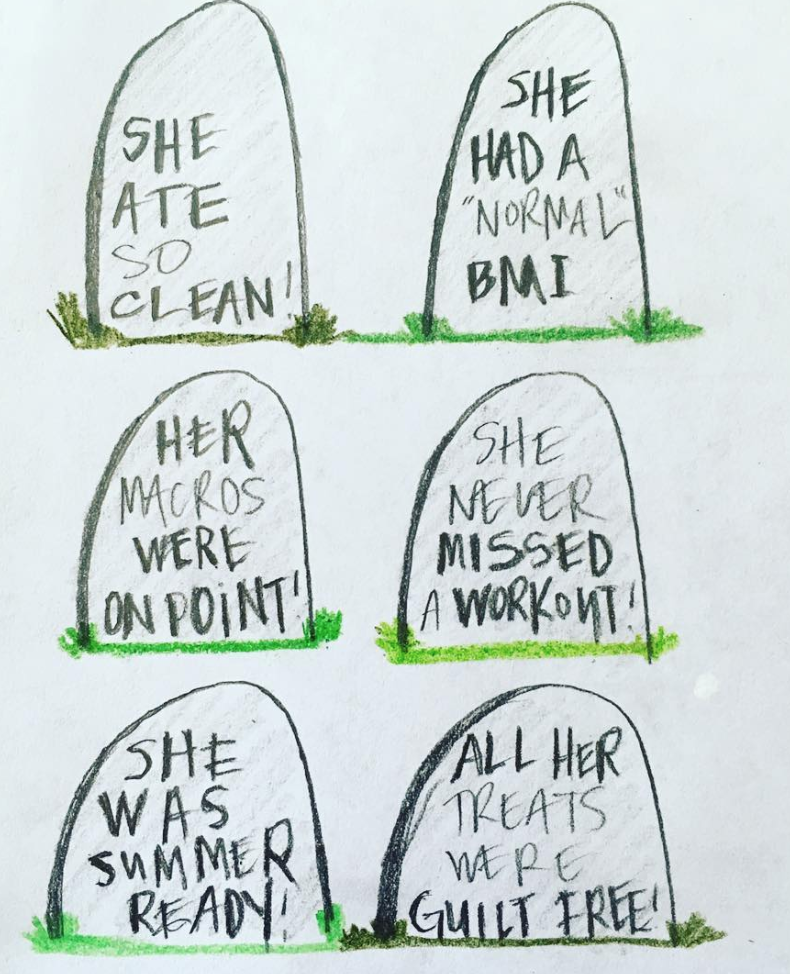 SHE
ATE
SO
CLEAN!
SHE
HAD A
"NORMAL"
BMI
HER
MACROS
WERE
ON POINT!
SHE
NEVER
MISSED
A WORKOUT!
SHE
WAS
SUMMER
READY!
ALL HER
TREATS
WERE
GUILT FREE!